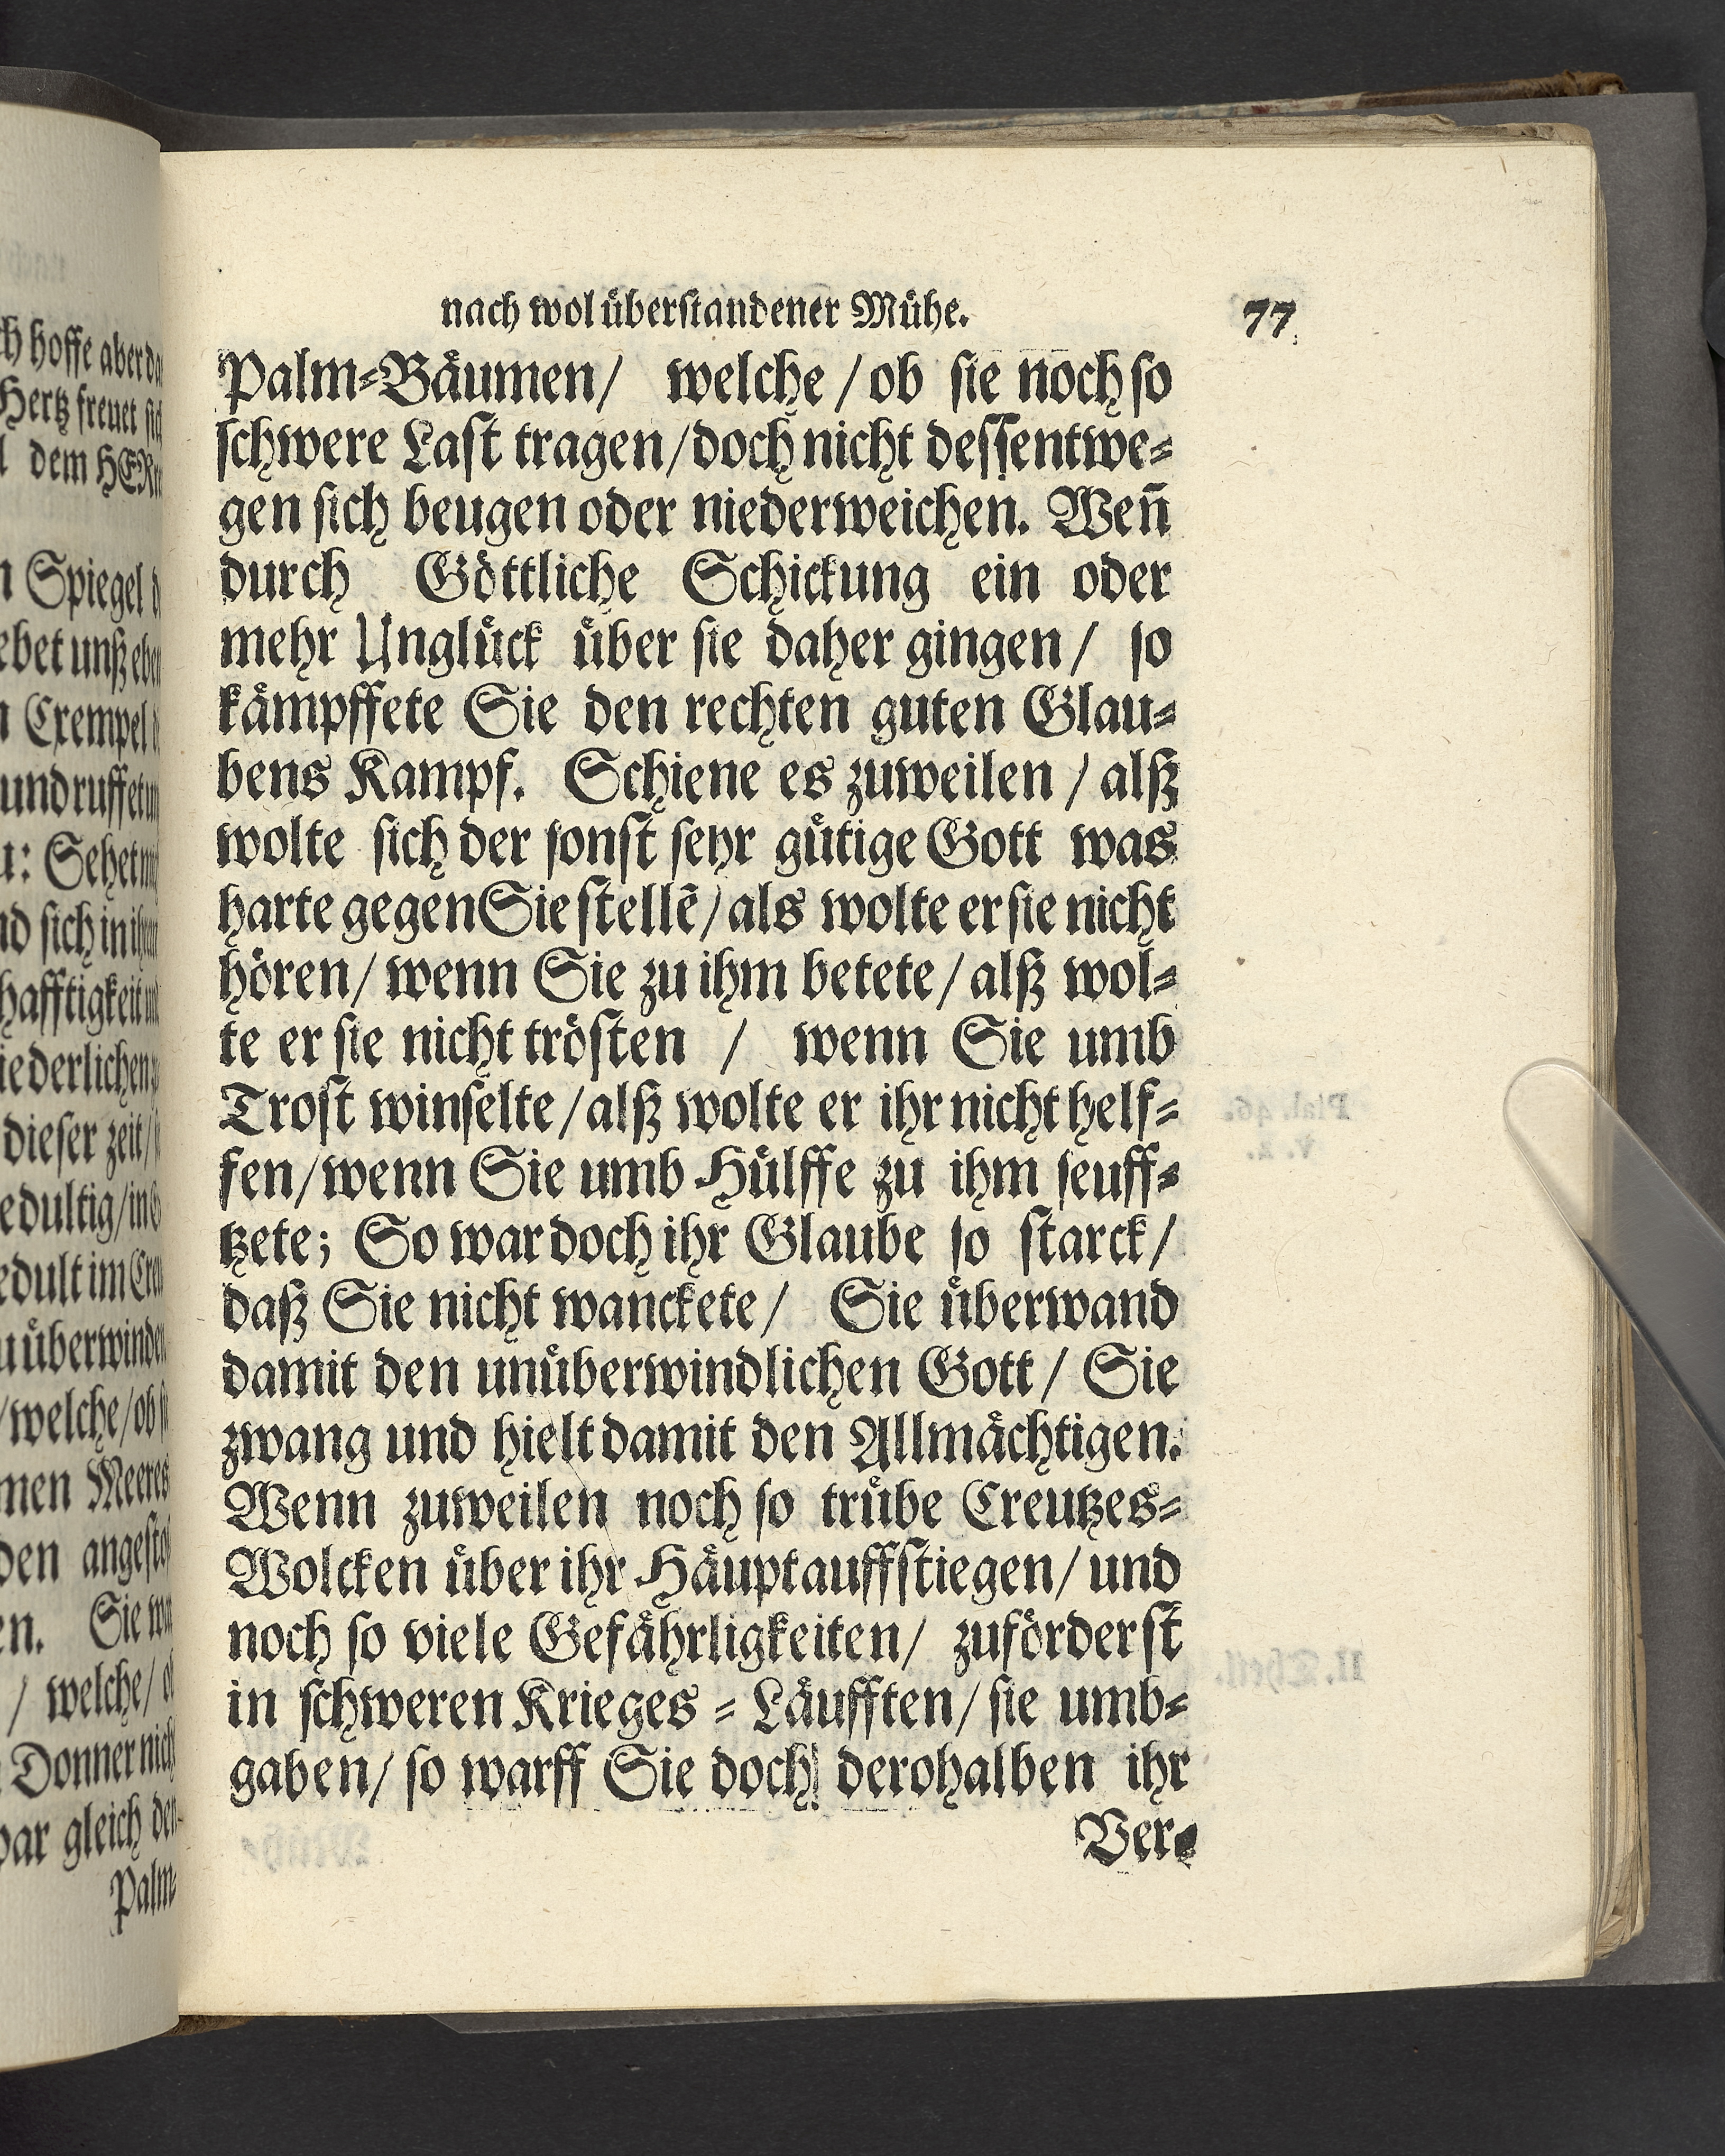 nach wol überstandener Mühe. 77
Palm-Bäumen/ welche / ob sie noch so
schwere Last tragen/ doch nicht dessentwe-
gen sich beugen oder niederweichen. Weñ
durch Göttliche Schickung ein oder
mehr Unglück über sie daher gingen/ so
kämpffete Sie den rechten guten Glau-
bens Kampf. Schiene es zuweilen / alß
wolte sich der sonst sehr gütige Gott was
harte gegen Sie stellẽ/ als wolte er sie nicht
hören/ wenn Sie zu ihm betete/ alß wol-
te er sie nicht trösten / wenn Sie umb
Trost winselte/ alß wolte er ihr nicht helf-
fen/ wenn Sie umb Hülffe zu ihm seuff-
tzete; So war doch ihr Glaube so starck/
daß Sie nicht wanckete/ Sie überwand
damit den unüberwindlichen Gott/ Sie
zwang und hielt damit den Allmächtigen.
Wenn zuweilen noch so trübe Creutzes-
Wolcken über ihr Häupt auffstiegen/ und
noch so viele Gefährligkeiten/ zuförderst
in schweren Krieges - Läufften/ sie umb-
gaben/ so warff Sie doch derohalben ihr
Ver-